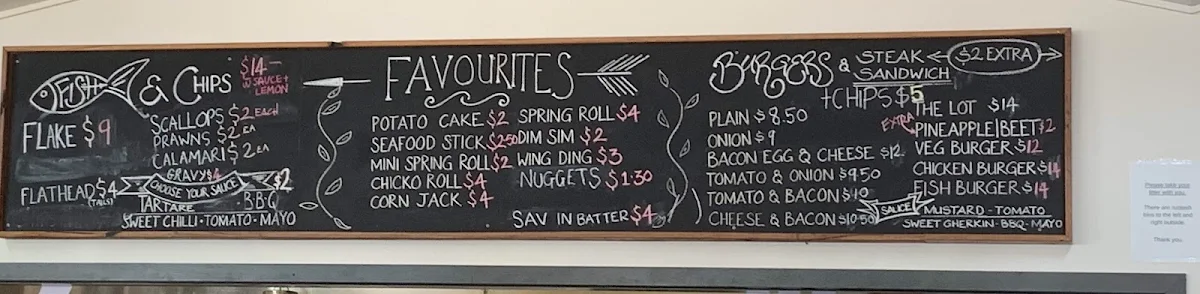 FISH & CHIPS $14-
W SAUCE +
LEMON
FLAKE $9
FLATHEAD $4
(TAILS)
SCALLOPS $2 EACH
PRAWNS $2 EA
CALAMARI $2 EA
GRAVY $4
CHOOSE YOUR SAUCE $2
TARTARE · BBQ
SWEET CHILLI · TOMATO · MAYO
FAVOURITES
POTATO CAKE $2
SEAFOOD STICK $2.50
MINI SPRING ROLL $2
CHICKO ROLL $4
CORN JACK $4
SPRING ROLL $4
DIM SIM $2
WING DING $3
NUGGETS $1.30
SAV IN BATTER $4
BURGERS & STEAK
SANDWICH
$2 EXTRA
+CHIPS $5
PLAIN $8.50
ONION $9
BACON EGG & CHEESE $12
TOMATO & ONION $9.50
TOMATO & BACON $10
CHEESE & BACON $10.50
THE LOT $14
EXTRA PINEAPPLE/BEET $2
VEG BURGER $12
CHICKEN BURGER $14
FISH BURGER $14
SAUCE MUSTARD - TOMATO
SWEET GHERKIN - BBQ - MAYO
Please take your
litter with you.
There are rubbish
bins to the left and
right outside.
Thank you